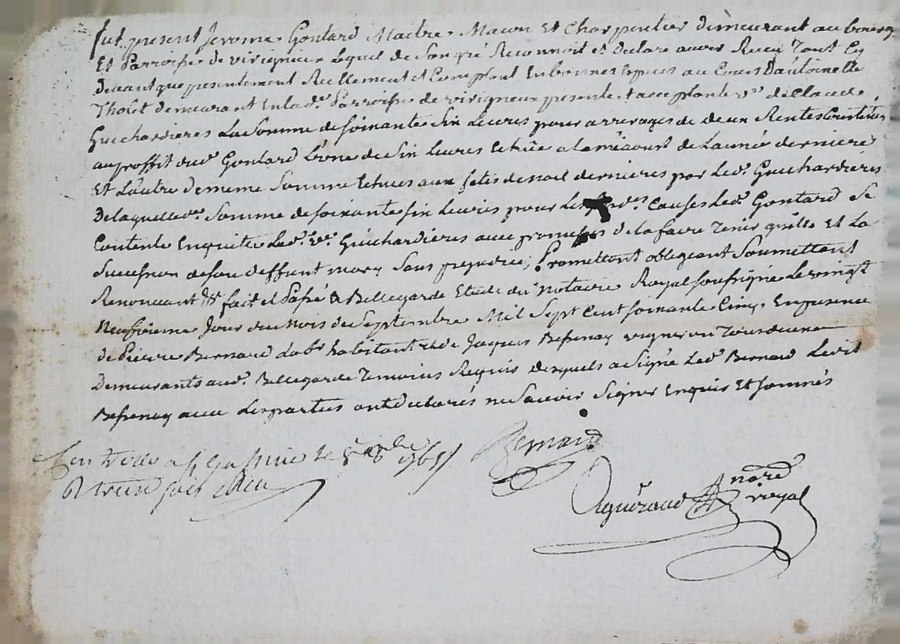 fut present Jerome Gontard Maitre Macon Et Charpentier demeurant au bourg
Et Parroisse de virigneux Lequel de Son gré Reconnoit et Declare avoir Recu Tant Cy
devant que presentement Reellement et Comptant En bonnes Especes au Cours D'antoinette
Tholet demeurant En lad.e Parroisse de virigneux presente et acceptante v.ve de Claude
Guichardieres La Somme de Soixante Six Livres pour arrerages de deux Rentes
au proffit dud. Gontard L'une de Six Livres Echûe a la micaout de L'année derniere
Et L'autre de meme Somme Echues aux fetes de noel dernieres par led. Guichardieres
De laquelle d.e Somme de Soixante Six Livres pour Les Causes Led. Gontard Se
Contente En quitte Lad. v.ve Guichardieres avec promesse de la faire Tenir quitte Et La
Succession de feu deffunt mary Sans prejudice; Promettant obligeant Soumettant
Renoncant fait et Passé a Bellegarde Etude du Notaire Royal Soussigné Le vingt
Neufvieme Jour du Mois de Septembre Mil Sept Cent Soixante Cinq En presence
de Pierre Bernard lab.r habitant et de Jaques Bessenay vigneron Tous deux
Demeurants aud. Bellegarde Temoins Requis desquels a Signé Led. Bernard Ledit
Bessenay avec Les parties ont declarés ne Scavoir Signer Enquis Et Sommés
le 8 8bre 1765
Bernard
R treize sols
Agueraud no.re royal